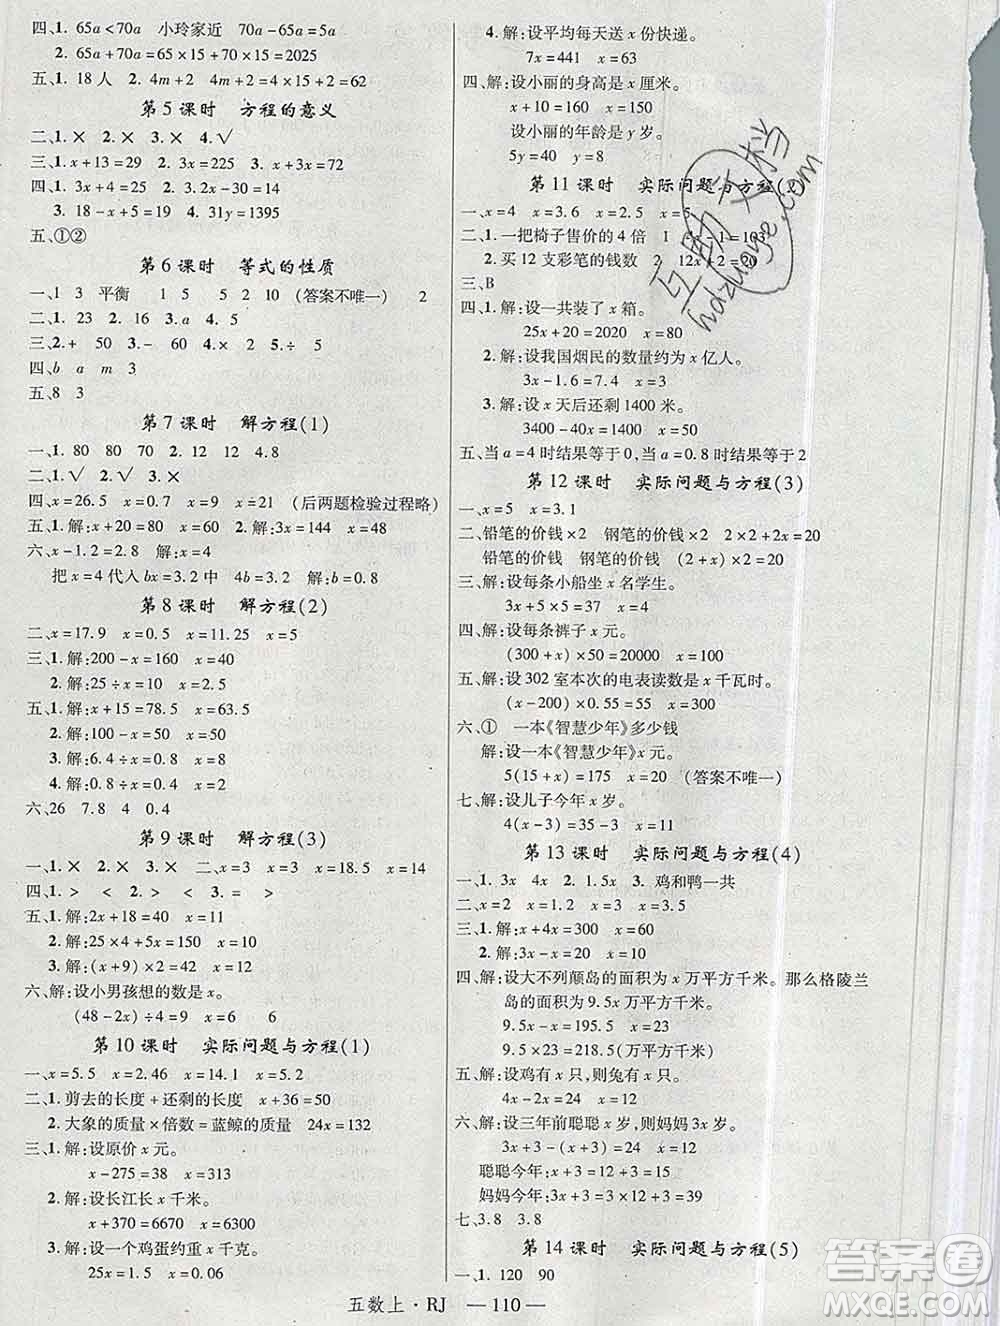 四、1. 65a<70a 小玲家近 70a-65a=5a
2. 65a+70a=65×15+70×15=2025
五、1. 18人 2. 4m+2 4m+2=4×15+2=62
第5课时 方程的意义
二、1. × 2. × 3. × 4. √
三、1. x+13=29 2. 3x=225 3. x+3x=72
四、1. 3x+4=25 2. 2x-30=14
3. 18-x=5 4. 31y=1395
五、①②
第6课时 等式的性质
一、1 3 平衡 1 5 5 2 10 (答案不唯一) 2
二、1. 23 2. 16 3. 8 4. 15
三、2. + 50 3. - 60 4. × 6 5. ÷ 5
四、b a m 3
五、8 3
第7课时 解方程(1)
一、1. 80 80 70 2. 12 12 4.8
二、1. √ 2. √ 3. ×
四、x=26.5 x=0.7 x=9 x=21 (后两题检验过程略)
五、1. 解:x+20=80 x=60 2. 解:3x=144 x=48
六、x-1.2=2.8 解:x=4
把x=4代入bx=3.2中 4b=3.2 解:b=0.8
第8课时 解方程(2)
二、x=17.9 x=0.5 x=11.25 x=5
三、1. 解:200-x=160 x=40
2. 解:25÷x=10 x=2.5
五、1. 解:x+15=78.5 x=63.5
2. 解:100-x=50 x=50
3. 解:6.4÷x=0.8 x=8
4. 解:0.8÷x=0.4 x=2
六、26 7.8 4 0.4
第9课时 解方程(3)
一、1. × 2. × 3. × 二、x=3 x=3 x=18.5 x=14
四、1. > < 2. > < 3. = >
五、1. 解:2x+18=40 x=11
2. 解:25×4+5x=150 x=10
3. 解:(x+9)×2=42 x=12
六、解:设小男孩想的数是x。
(48-2x)÷4=9 x=6 6
第10课时 实际问题与方程(1)
一、x=5.5 x=2.46 x=14 x=5.2
二、1. 剪去的长度+还剩的长度 x+36=50
2. 大象的质量×倍数=蓝鲸的质量 24x=132
三、1. 解:设原价x元。
x-275=38 x=313
2. 解:设长江长x千米。
x+370=6670 x=6300
3. 解:设一个鸡蛋约重x千克。
25x=1.5 x=0.06
4. 解:设平均每天送x份快递。
7x=441 x=63
四、解:设小丽的身高是x厘米。
x+10=160 x=150
设小丽的年龄是y岁。
5y=40 y=8
第11课时 实际问题与方程(2)
一、x=4 x=3.6 x=2.5 x=5
二、1. 一把椅子售价的4倍 1 -1=103
2. 买12支彩笔的钱数 2 12x+2=20
三、B
四、1. 解:设一共装了x箱。
25x+20=2020 x=80
2. 解:设我国烟民的数量约为x亿人。
3x-1.6=7.4 x=3
3. 解:设x天后还剩1400米。
3400-40x=1400 x=50
五、当a=4时结果等于0,当a=0.8时结果等于2
第12课时 实际问题与方程(3)
一、x=5 x=3.1
二、铅笔的价钱×2 钢笔的价钱×2 2×2+2x=20
铅笔的价钱 钢笔的价钱 (2+x)×2=20
三、解:设每条小船坐x名学生。
3x+5×6=51 x=7
四、解:设每条裤子x元。
(300+x)×50=20000 x=100
五、解:设302室本次的电表读数是x千瓦时。
(x-200)×0.55=55 x=300
六、① 一本《智慧少年》多少钱
解:设一本《智慧少年》x元。
5(15+x)=175 x=20 (答案不唯一)
七、解:设儿子今年x岁。
4(x-3)=35-3 x=11
第13课时 实际问题与方程(4)
一、1. 3x 4x 2. 1.5x 3. 鸡和鸭一共
二、x=2 x=2 x=3 x=3.5
三、1. 解:x+4x=300 x=60
2. 解:3x-x=20 x=10
四、解:设大不列颠岛的面积为x万平方千米。那么格陵兰
岛的面积为9.5x万平方千米。
9.5x-x=195.5 x=23
9.5x=9.5×23=218.5(万平方千米)
五、解:设鸡有x只,则兔有x只。
4x-2x=24 x=12
六、解:设三年前聪聪x岁,则妈妈3x岁。
3x+3-(x+3)=24 x=12
聪聪今年:x+3=12+3=15
妈妈今年:3x+3=3×12+3=39
七、3.8 3.8
第14课时 实际问题与方程(5)
一、1. 120 90
五数上·RJ —110—
互助文档
hdzuoye.com
答案圈
MXQE.COM